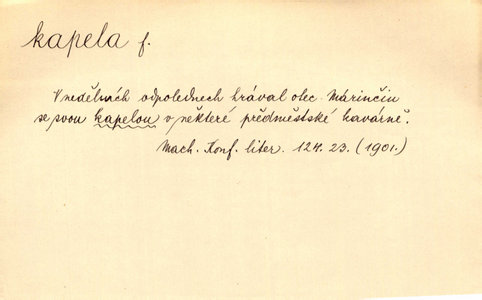 kapela f.
V nedělních odpolednech hrával otec Márinčin
se svou kapelou v některé předměstské kavárně.
Mach. Konf. liter. 124. 23. (1901.)